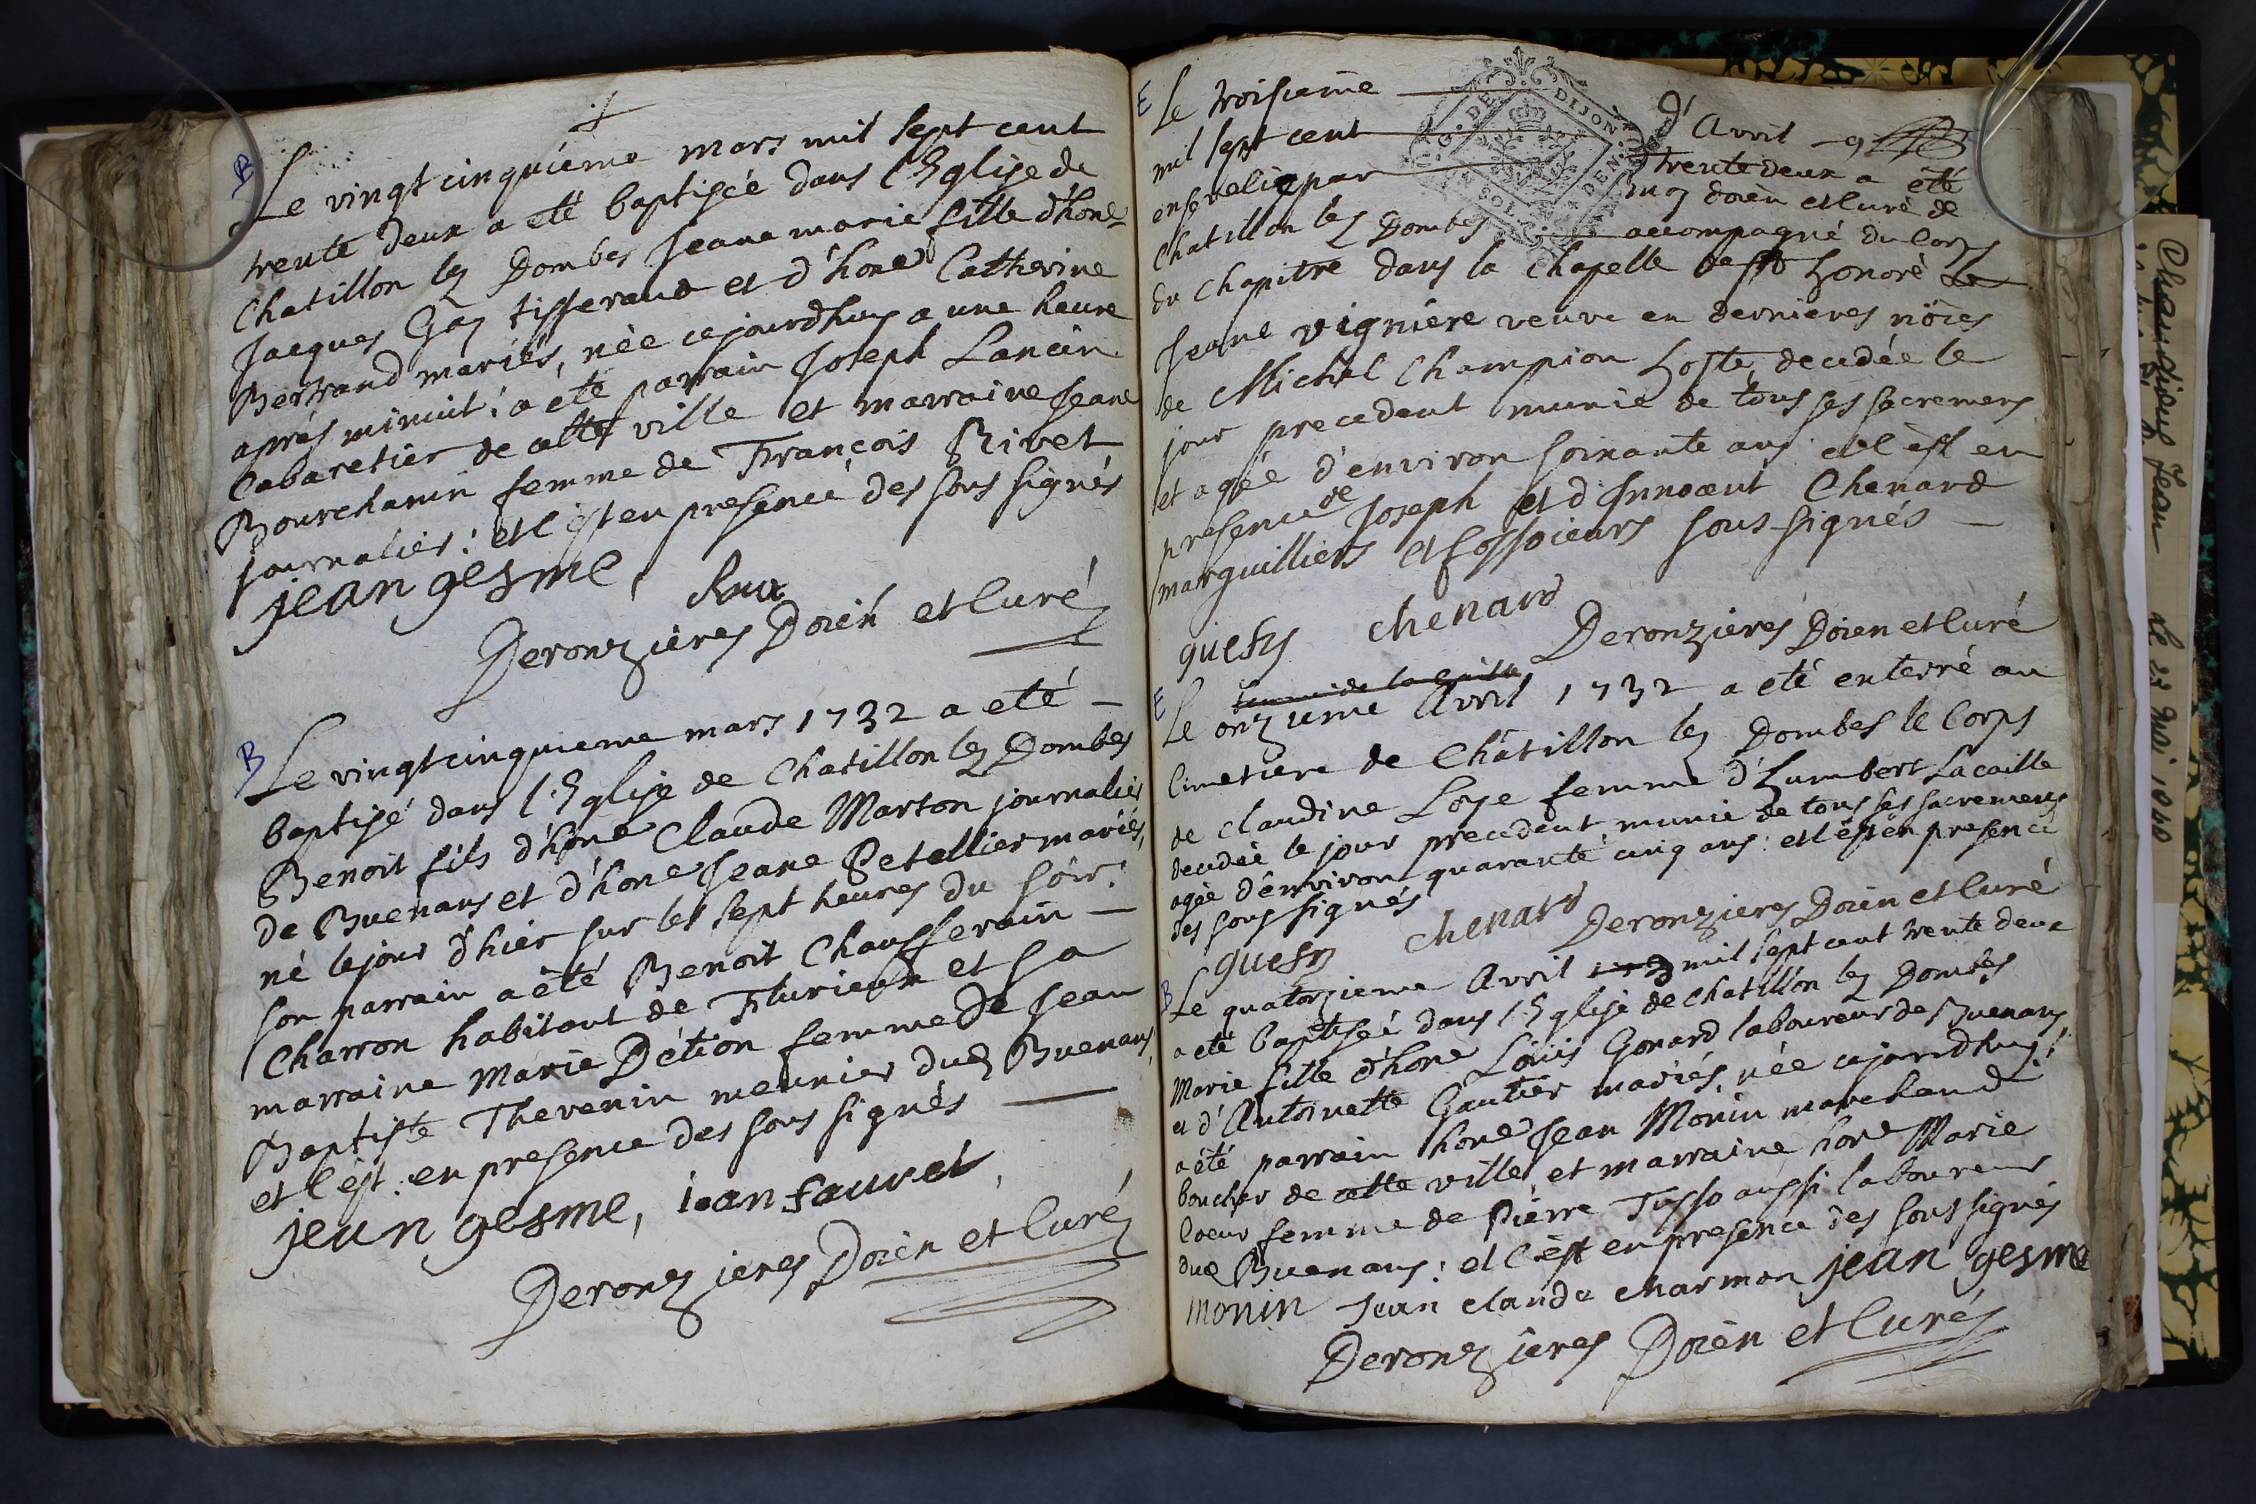 B
Le vingt cinquieme mars mil sept cent
trente deux a eté baptisée dans l'Eglise de
Chatillon lez Dombes Jeane marie fille d'hone
Jacques Gay tisserand et d'hone Catherine
Bertrand mariés, née cejourdhuy a une heure
aprés minuit : a eté parrain Joseph Lancin
Cabaretier de cette ville et marraine Jeane
Bourchanin femme de François Rivet
journalier : et c'est en presence des sous signés
jean gesme, Roux
Deronzieres Doien et Curé
B
Le vingtcinquieme mars 1732 a eté
baptisé dans l'Eglise de Chatillon lez Dombes
Benoit fils d'hone Claude Marton journalier
de Buenans et d'hone Jeane Petellier mariés,
né le jour d'hier sur les sept heures du soir :
son parrain a été Benoit Chausserain
Charron habitant de Flurieux et sa
marraine Marie Détion femme de Jean
Baptiste Thevenin meunier dud Buenans
et c'est en presence des sous signés
jean gesme, iean fauret,
Deronzieres Doien et Curé
E
Le troisieme d'Avril
mil sept cent trente deux a été
ensevelie par moy doien et Curé de
Chatillon lez Dombes accompagné du Corps
du Chapitre dans la Chapelle St honoré Le
Jeane vigniere veuve en dernieres nôces
de Michel Champion hoste, decedée le
jour precedent munie de tous ses sacremens
et agée d'environ soixante ans et c'est en
presence de Joseph et d'Innocent Chenard
marguilliers et fossoieurs sous signés
chenard
Deronzieres Doien et Curé
E
Le onzieme Avril 1732 a eté enterré au
Cimetiere de Châtillon lez Dombes le Corps
de Claudine Loye femme d'humbert Lacaille
decedée le jour precedent, munie de tous ses sacremens
agée d'environ quarante cinq ans : et c'est en presence
des sous signés
chenard
Deronzieres Doien et Curé
B
Le quatorzieme Avril mil sept cent trente deux
a eté baptiseé dans l'Eglise de Chatillon lez Dombes
Marie fille d'hone Loüis Gonard laboureur de Buenans
et d'Antoinette Gautier mariés, née cejourdhuy :
a été parrain hone Jean Monin marchand
boucher de cette ville, et marraine hone Marie
Coeur femme de Pierre Tysso aussi laboureur
dud Buenans : et c'est en presence des sous signés
monin Jean claude charmon jean gesme
Deronzieres Doien et Curé
G. DE DIJON
SOL.
DEN.
Jean Le 23 Mai 1840